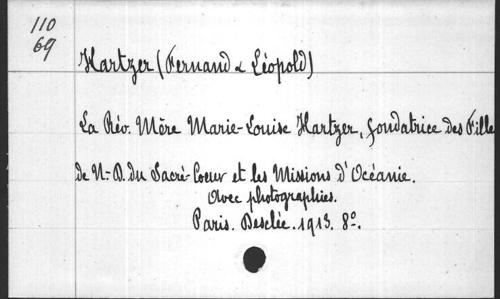 110
69
Hartzer (Fernand & Léopold)
La Rév. Mère Marie-Louise Hartzer, fondatrice des Filles
de N.-D. du Sacré-Coeur et les Missions d'Océanie.
Avec photographies.
Paris. Desclée. 1913. 8º.